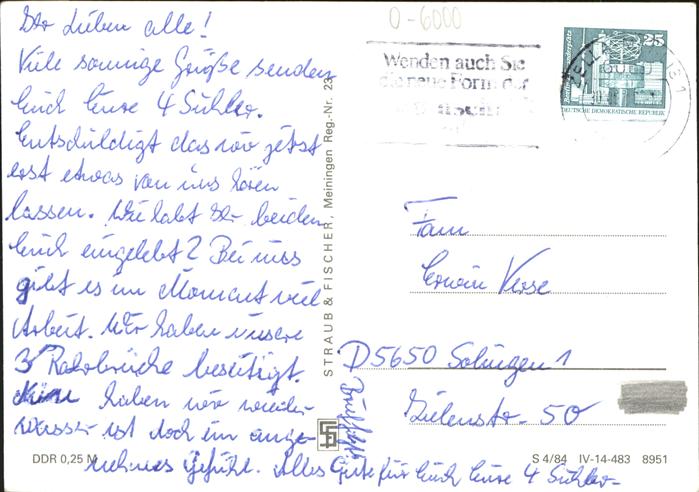 Ihr Lieben alle!
Viele sonnige Grüße senden
Euch Eure 4 Suhler.
Entschuldigt das wir jetzt
erst etwas von uns hören
lassen. Wie habt Ihr beiden
Euch eingelebt? Bei uns
gibt es im Moment viel
Arbeit. Wir haben unsere
3 Rohrbrüche beseitigt.
haben wir wieder
Wasser ist doch ein ange-
nehmes Gefühl. Alles Gute für Euch Eure 4 Suhler-
DDR 0,25 M
STRAUB & FISCHER, Meiningen Reg.-Nr. 23
0-6000
Wenden auch Sie
die neue Form der
25
DEUTSCHE DEMOKRATISCHE REPUBLIK
ZELLA
Fam
Erwin
D5650 Solingen 1
50
S 4/84 IV-14-483 8951